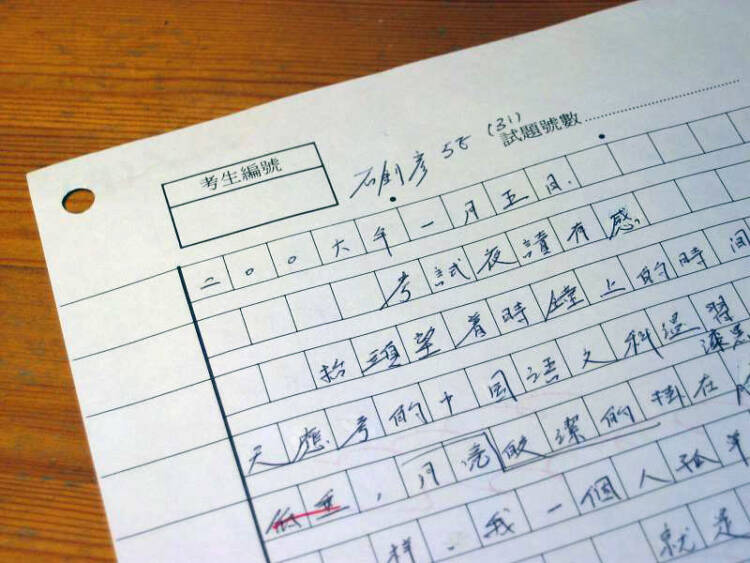 考生編號
石釗彥 5E (31) 試題號數
二〇〇六年一月五日.
考試夜讀有感
抬頭望着時鐘上的時間
天應考的中国語文科温習
漆黑
低垂，月亮皎潔的掛在
一樣，我一個人孤單
就是